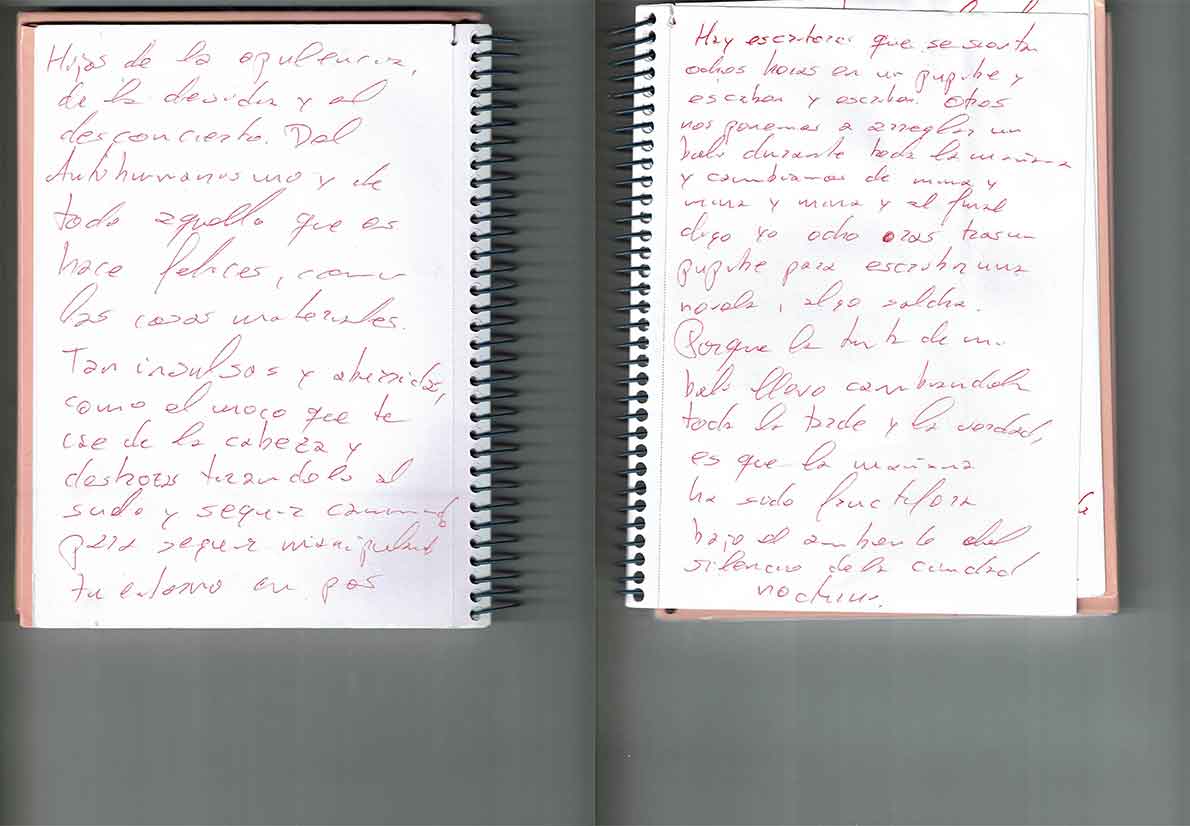 Hijos de la opulencia,
de la desidia y el
desconcierto. Del
Antihumanismo y de
todo aquello que os
hace felices, como
las cosas materiales.
Tan insulsos y aburridos,
como el moco que te
cae de la cabeza y
destrozas tirandolo al
suelo y seguir camino
para seguir manipulando
tu entorno en pos
Hay escritores que se sientan
ochos horas en un pupitre y
escriben y escriben. Otros
nos ponemos a arreglar un
boli durante toda la mañana
y cambiamos de mina y
mina y mina y al final
digo yo ocho oras tras un
pupitre para escribir una
novela, algo saldra.
Porque la tinta de mi
boli llevo cambiandola
toda la tarde y la verdad,
es que la mañana
ha sido fructifera
bajo el ambiente del
silencio de la ciudad
nocturna.